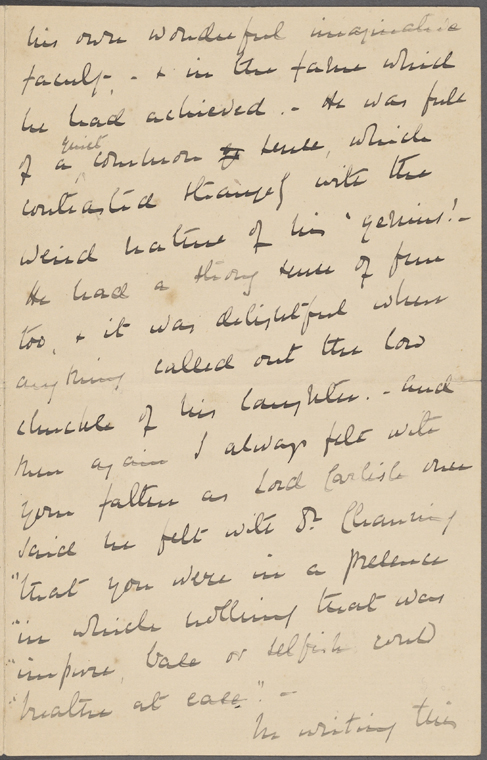 his own wonderful imaginative
faculty, - & in the fame which
he had achieved. - He was full
quiet
of a common sense, which
contrasted strangely with the
weird nature of his 'genius'. -
He had a strong sense of fun
too, & it was delightful when
anything called out the low
chuckle of his laughter. - and
then again I always felt with
your father as Lord Carlisle once
said he felt with Dr. Channing
"that you were in a presence
"in which nothing that was
"impure, base or selfish could
"breathe at ease". -
In writing this